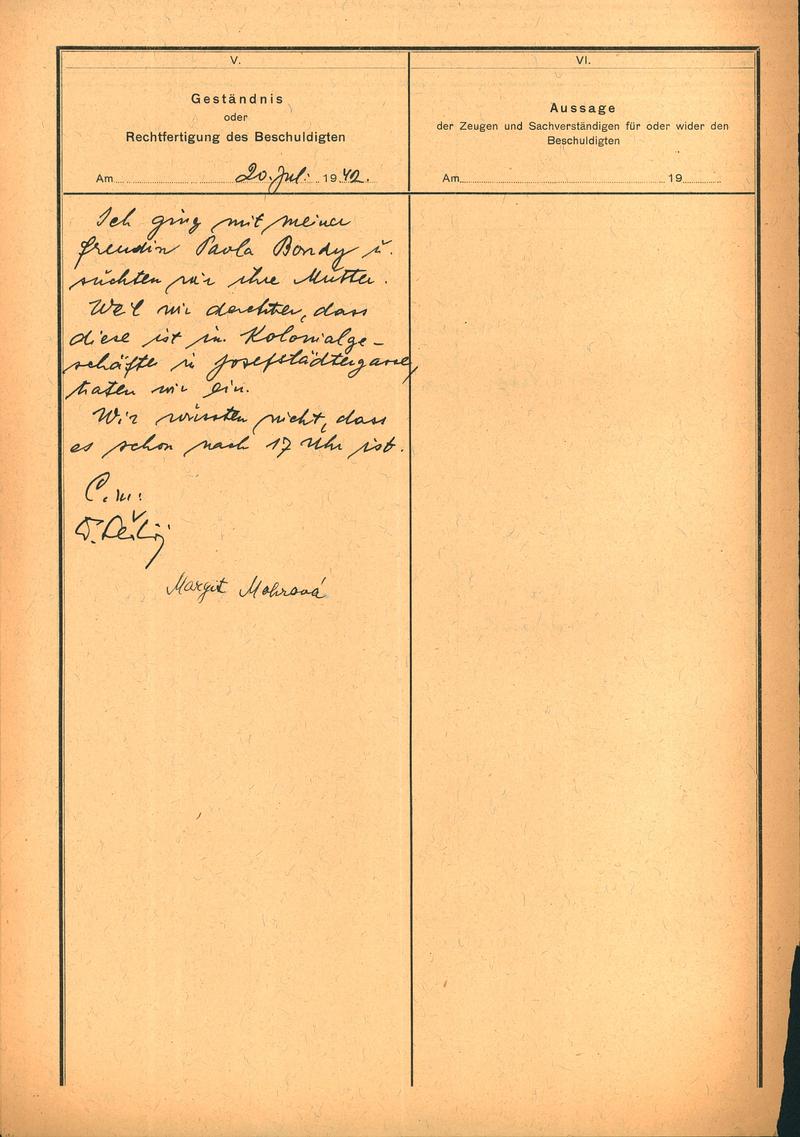 V.
Geständnis
oder
Rechtfertigung des Beschuldigten
Am 20. Jul. 1942.
Ich ging mit meiner
freudin Paola Bondy u.
suchten wir ihre Mutter.
Weil wir dachten, dass
diese ist in Kolonialge-
schäfte in Josefstädtergasse,
traten wir ein.
Wir wussten nicht, dass
es schon nach 17 Uhr ist.
Margit Mohrová
VI.
Aussage
der Zeugen und Sachverständigen für oder wider den
Beschuldigten
Am 19